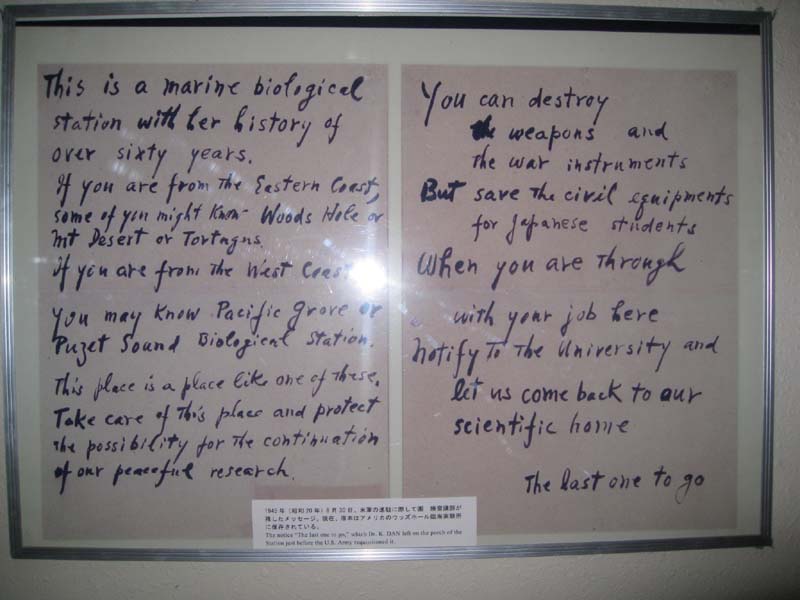 This is a marine biological
station with her history of
over sixty years.
If you are from the Eastern Coast,
some of you might know Woods Hole or
Mt Desert or Tortugas.
If you are from the West Coast
you may know Pacific Grove or
Puget Sound Biological Station.
This place is a place like one of these.
Take care of this place and protect
the possibility for the continuation
of our peaceful research.
You can destroy
the weapons and
the war instruments
But save the civil equipments
for Japanese students
When you are through
with your job here
Notify to the University and
let us come back to our
scientific home
The last one to go
1945年(昭和20年)8月30日、米軍の進駐に際して團 勝磨講師が
残したメッセージ。現在、原本はアメリカのウッズホール臨海実験所
に保存されている。
The notice "The last one to go," which Dr. K. DAN left on the porch of the
Station just before the U.S. Army requisitioned it.